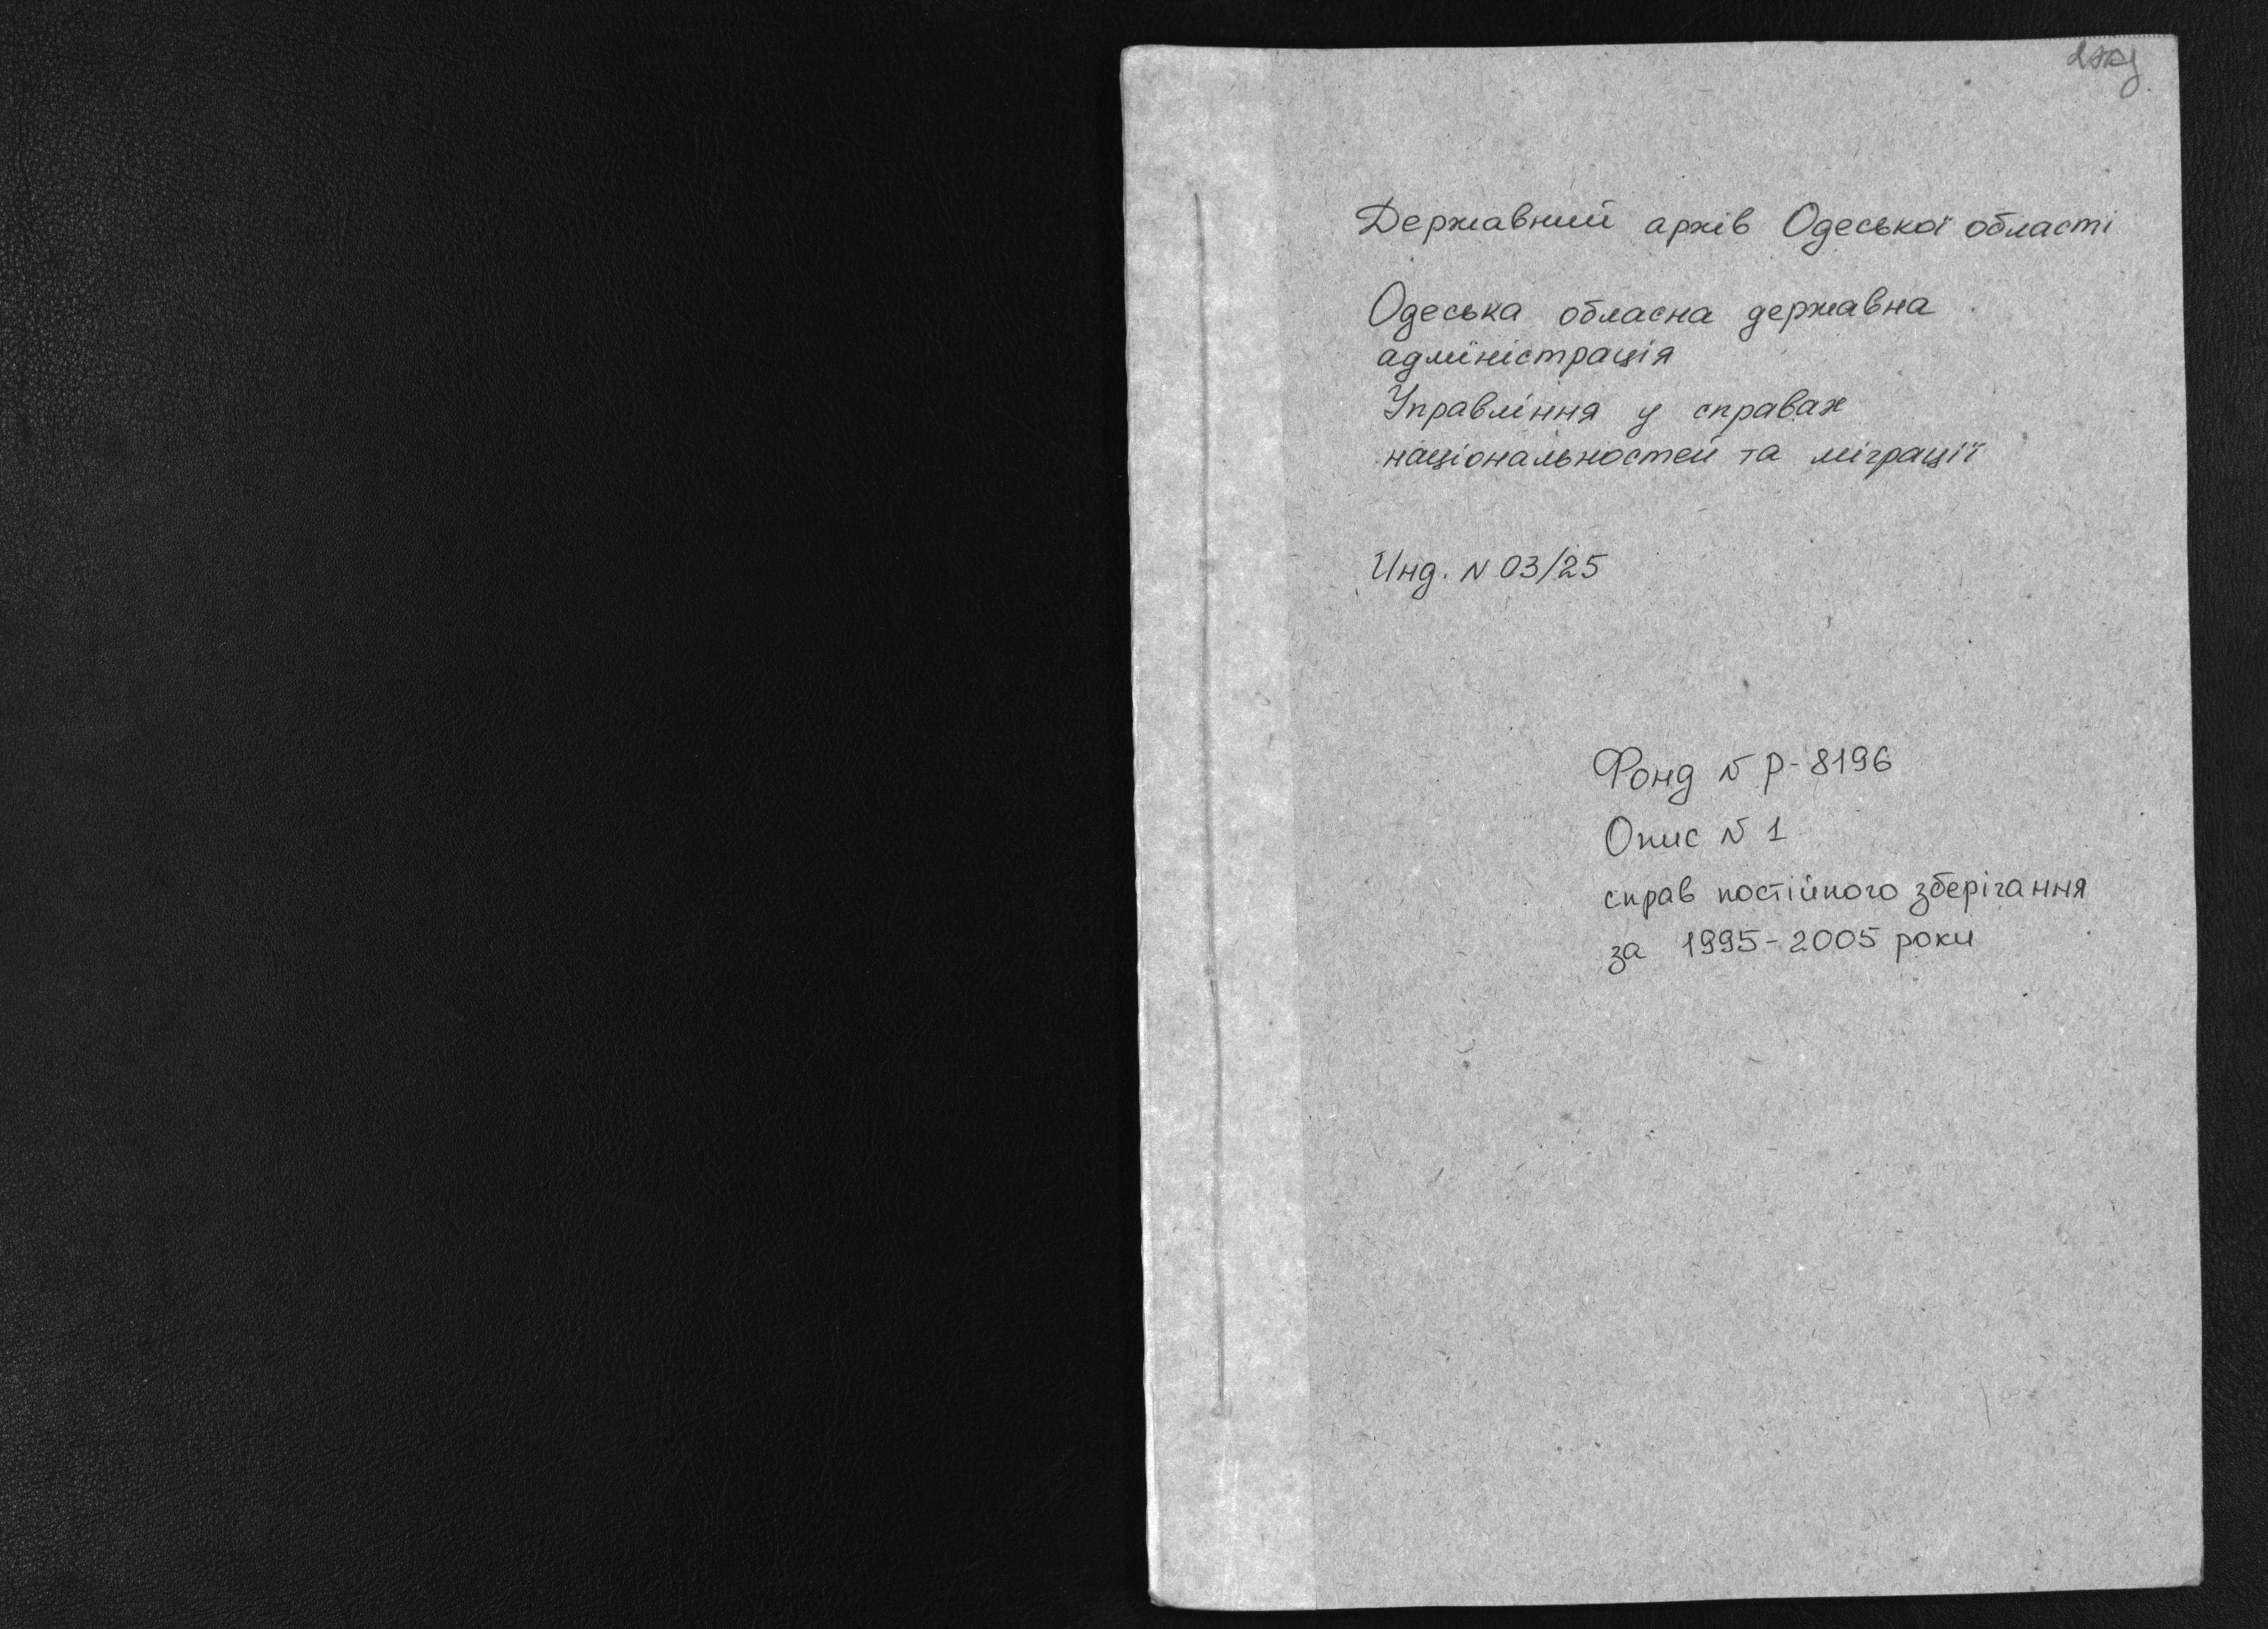 Державний архів Одеської області
Одеська обласна державна
адміністрація
Управління у справах
національностей та міграції
Инд. N 03/25
Фонд N Р-8196
Опис N 1
справ постійного зберігання
за 1995-2005 роки